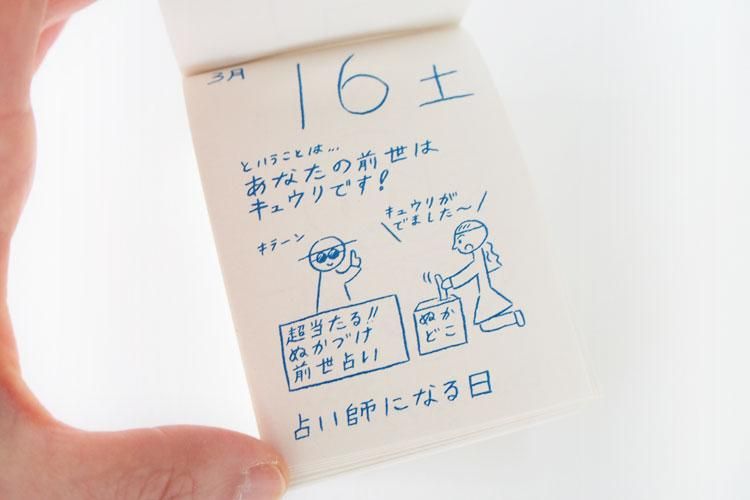 3月
16 土
ということは...
あなたの前世は
キュウリです!
キラーン
キュウリが
でました〜
超当たる!!
ぬかづけ
前世占い
ぬか
どこ
占い師になる日